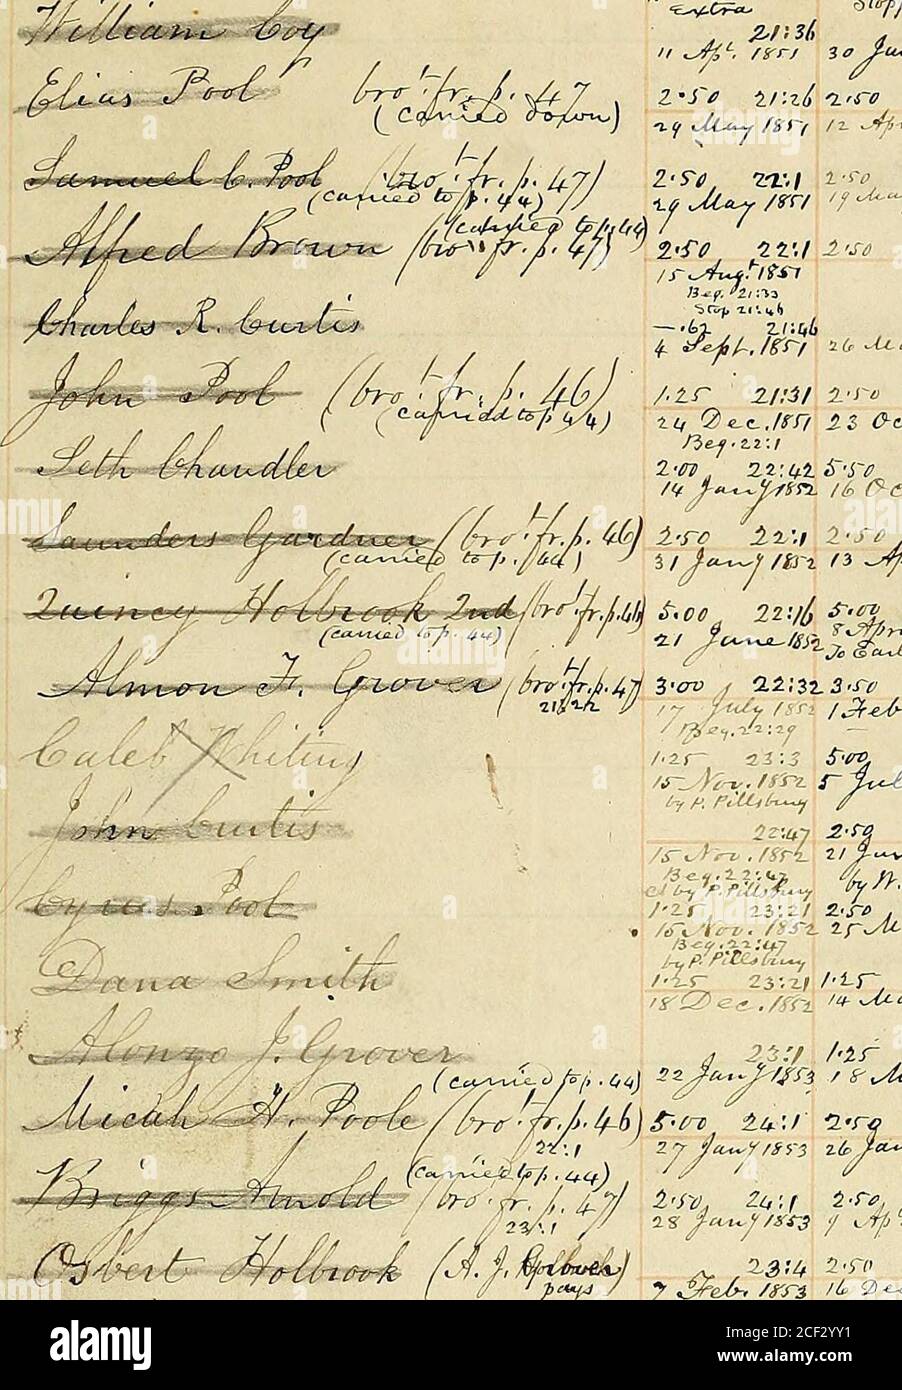 Extra
William Coy 21:36
11 Apl. 1851 30
Elias Pool bro't fr. p. 47 2.50 21:26 2.50
(carried down) 29 May 1851 12 Apr
Samuel C. Pool (bro't fr. p. 47) 2.50 22:1 2.50
(carried to p. 44) 29 May 1851 19 Ma
(carried to p. 44)
Alfred Brown (bro't fr. p. 47) 2.50 22:1 2.50
15 Aug. 1851
Beg. 21:33
Stop 21:46
Charles R. Curtis —.62 21:46
4 Sept. 1851 26 Ma
John Pool (bro't fr. p. 46) 1.25 21:31 2.50
(carried to p 44) 24 Dec. 1851 23 Oc
Beg. 22:1
Seth Chandler 2.00 22:42 5.50
14 Jany 1852 16 Oc
Saunders Gardner (bro't fr. p. 46) 2.50 22:1 2.50
(carried to p. 44) 31 Jany 1852 13 Ap
Quincy Holbrook 2nd (bro't fr. p. 46) 5.00 22:16 5.00
(carried to p. 44) 21 June 1852 8 Apr
To Earl
Almon F. Grover (bro't fr. p. 47) 3.00 22:32 3.50
17 July 1852 1 Feb
Beg. 22:29
Caleb Whiting 1.25 23:3 5.00
15 Nov. 1852 5 Jul
by P. Pillsbury
John Curtis 22:47 2.50
15 Nov. 1852 21 Jun
Beg. 22:47 by W.
by P. Pillsbury
Cyrus Pool 1.25 23:21 2.50
15 Nov. 1852 25 M
Beg. 22:47
by P. Pillsbury
Dana Smith 1.25 23:21 1.25
18 Dec. 1852 14 Ma
Alonzo J. Grover 23:1 1.25
(carried to p. 44) 22 Jany 1853 18 M
Micah H. Poole (bro't fr. p. 46) 5.00 24:1 2.50
22:1 27 Jany 1853 26 Jan
(carried to p. 44)
Briggs Arnold (bro't fr. p. 47) 2.50 24:1 2.50
23:1 28 Jany 1853 9 Ap
Osbert Holbrook (A. J. Holbrook 23:4 2.50
pays) 7 Feb. 1853 16 De
alamy
Image ID: 2CF2YY1
www.alamy.com